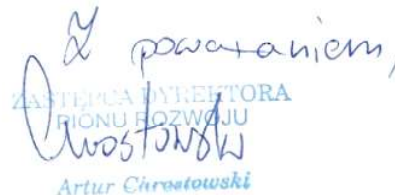 Z poważaniem,
ZASTĘPCA DYREKTORA
PIONU ROZWOJU
Chrostowski
Artur Chrostowski